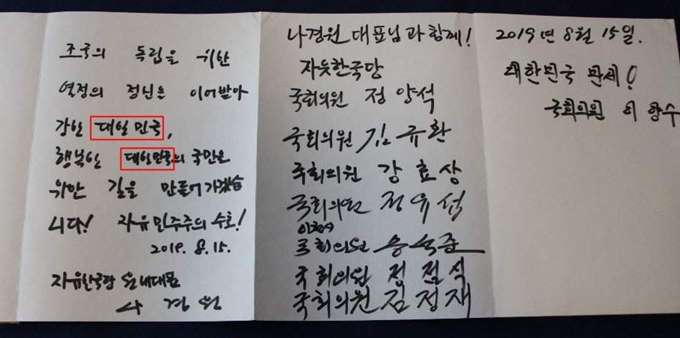 조국의 독립을 위한
열정의 정신을 이어받아
강한 대일 민국,
행복한 대일민국의 국민을
위한 길을 만들어가겠습
니다! 자유 민주주의 수호!
2019. 8. 15.
자유한국당 원내대표
나 경 원
나경원 대표님과 함께!
자유한국당
국회의원 정 양 석
국회의원 김 규 환
국회의원 강 효 상
국회의원 정 유 섭
이천
국회의원 송 석 준
국회의원 정 점 식
국회의원 김 정 재
2019년 8월 15일.
대한민국 만세!
국회의원